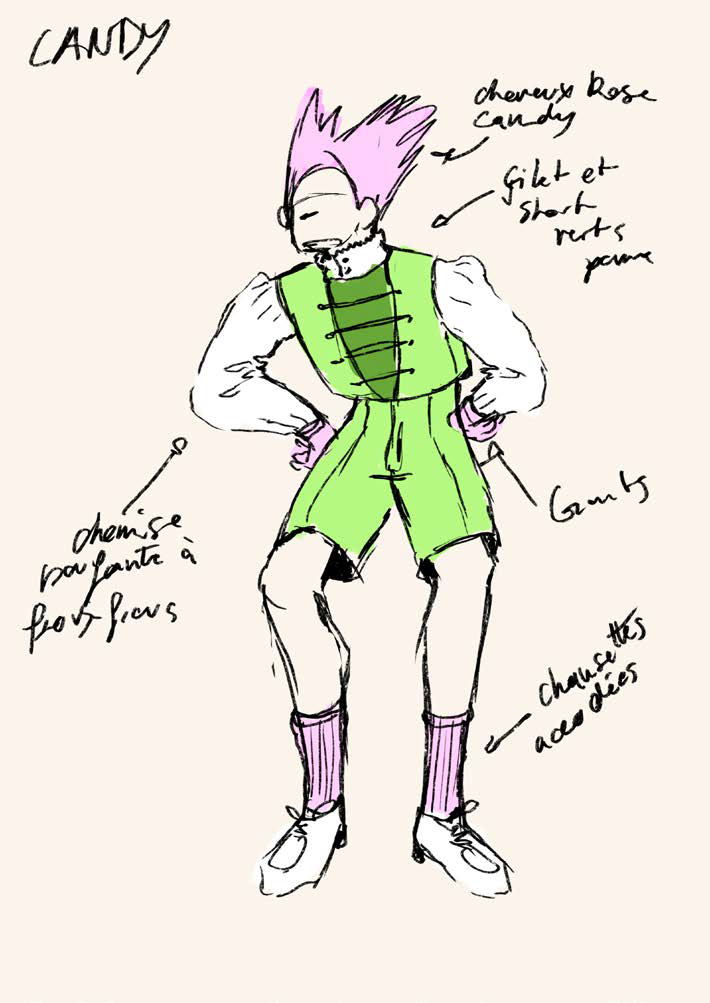 CANDY
cheveux Rose
candy
Gilet et
short
verts
pomme
Gants
chemise
boufante à
frou frous
chausettes
accordées